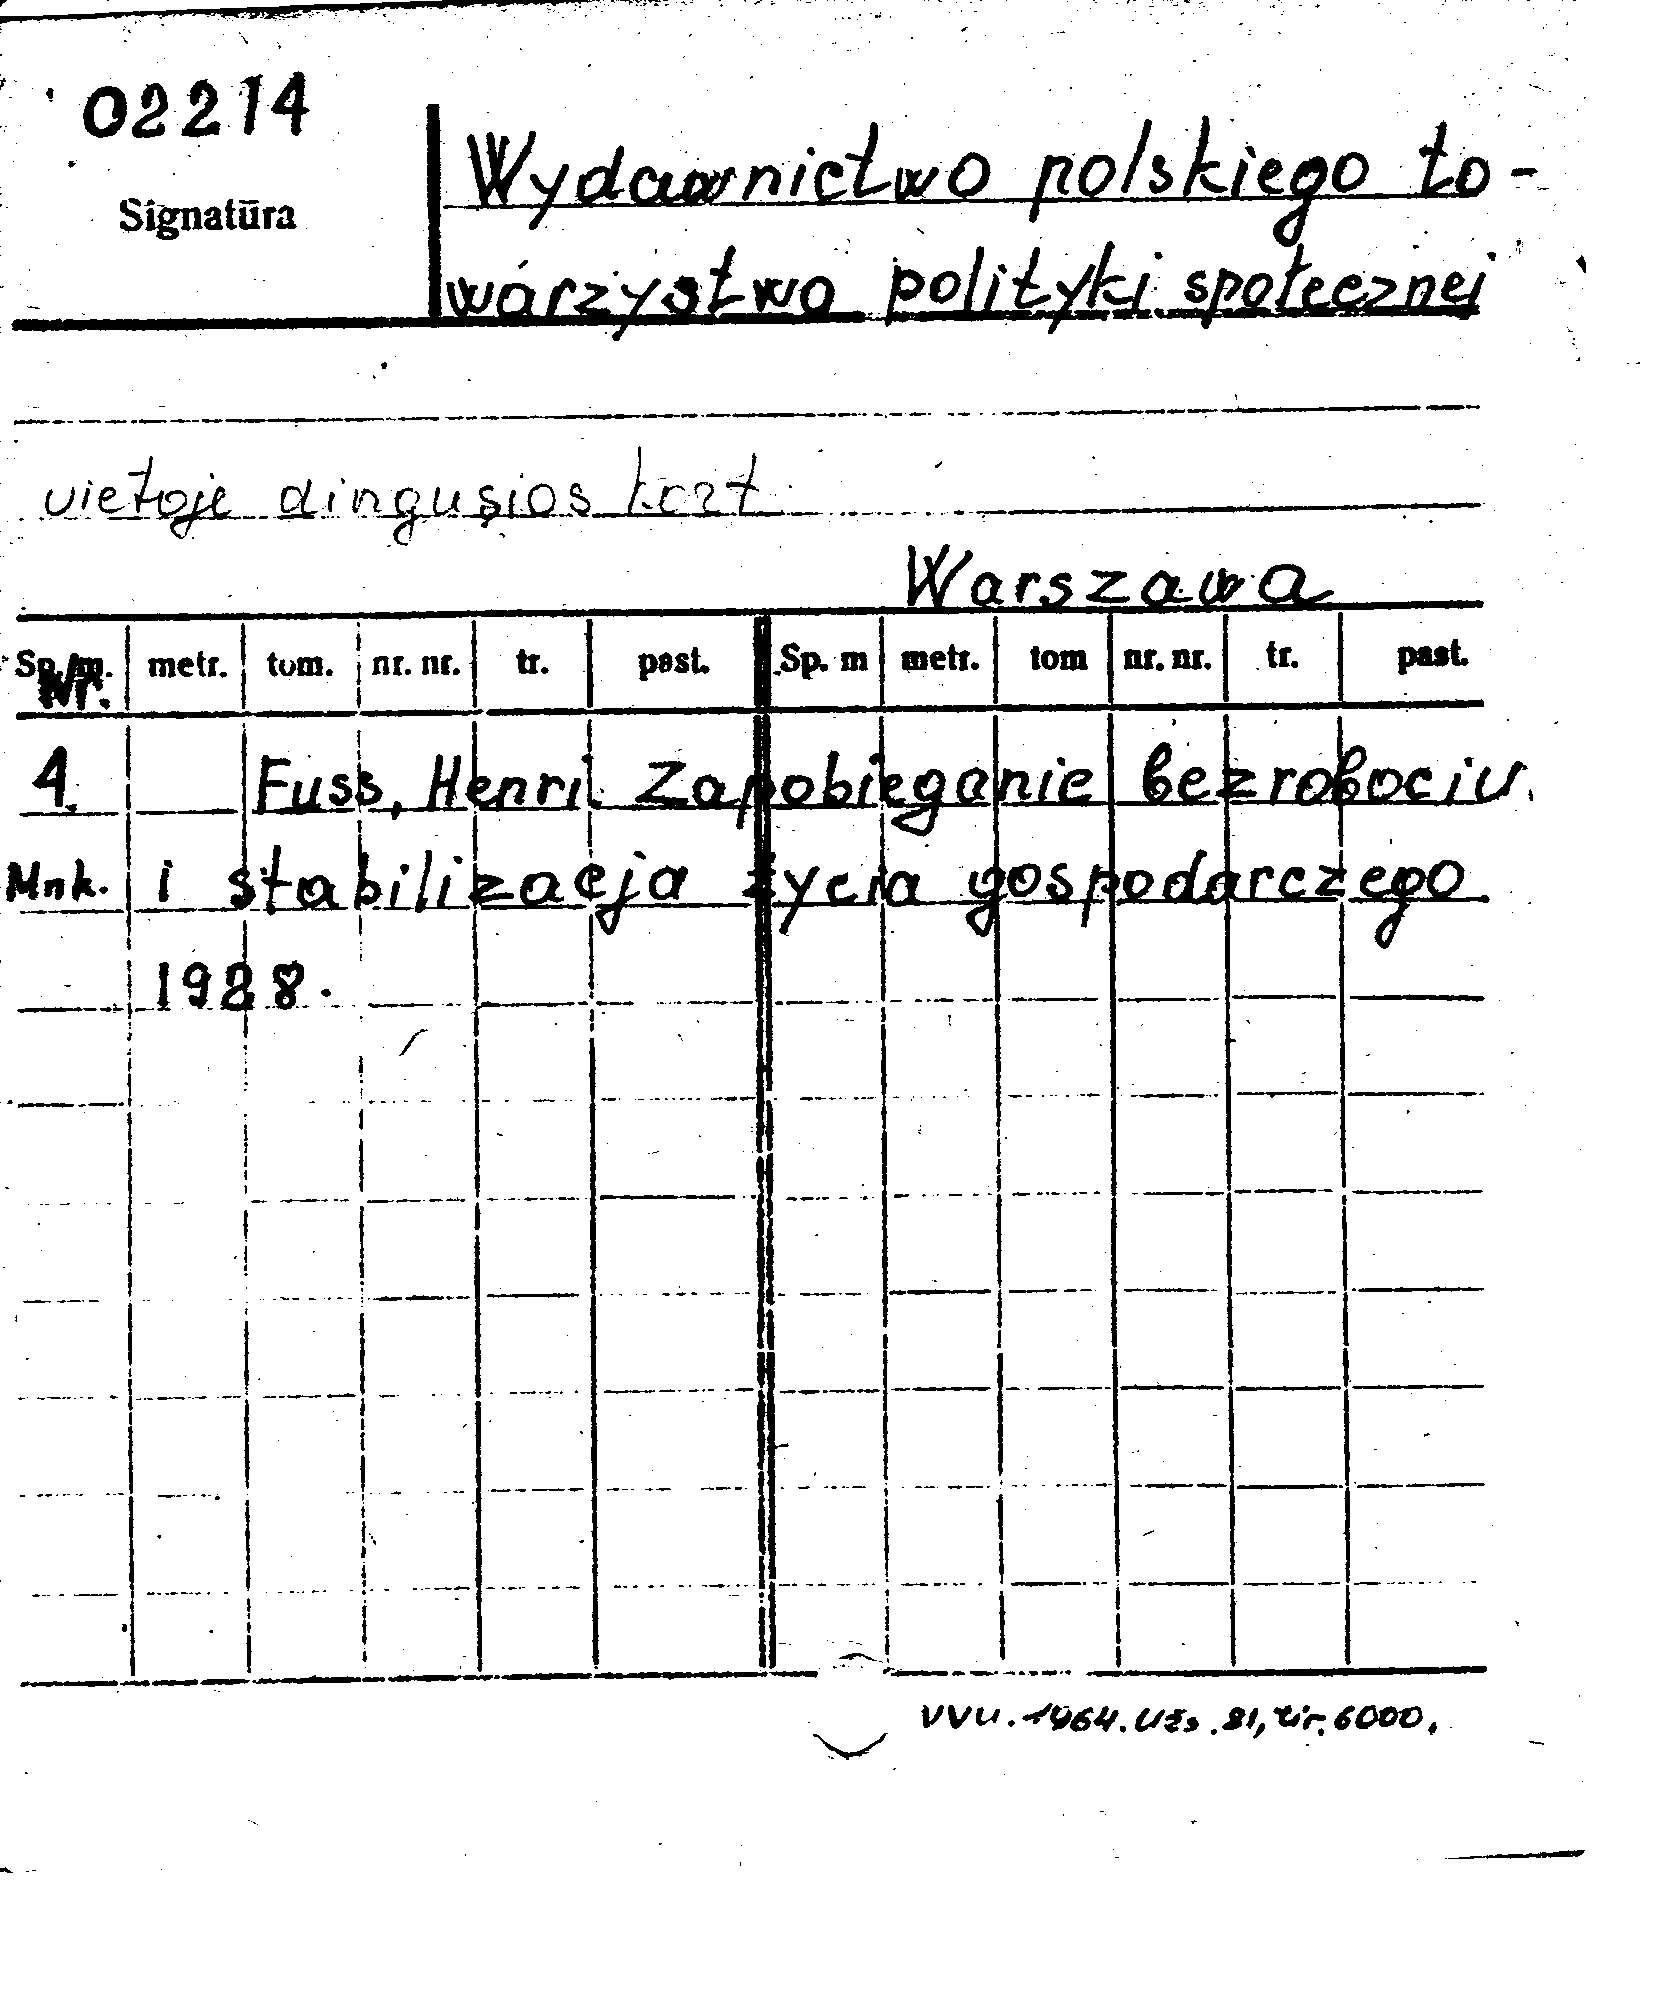 02214
Signatūra
Wydawnictwo polskiego to-
warzystwo polityki społecznej
vietoje dingusios krzt
Warszawa
Sp. m. metr. tom. nr. nr. tr. past. Sp. m metr. tom nr. nr. tr. past.
Nr.
4. Fuss, Henri. Zapobieganie bezrobociu.
Mnk. i stabilizacja życia gospodarczego.
1928.
VVU. 1964. Užs. 81, tir. 6000.